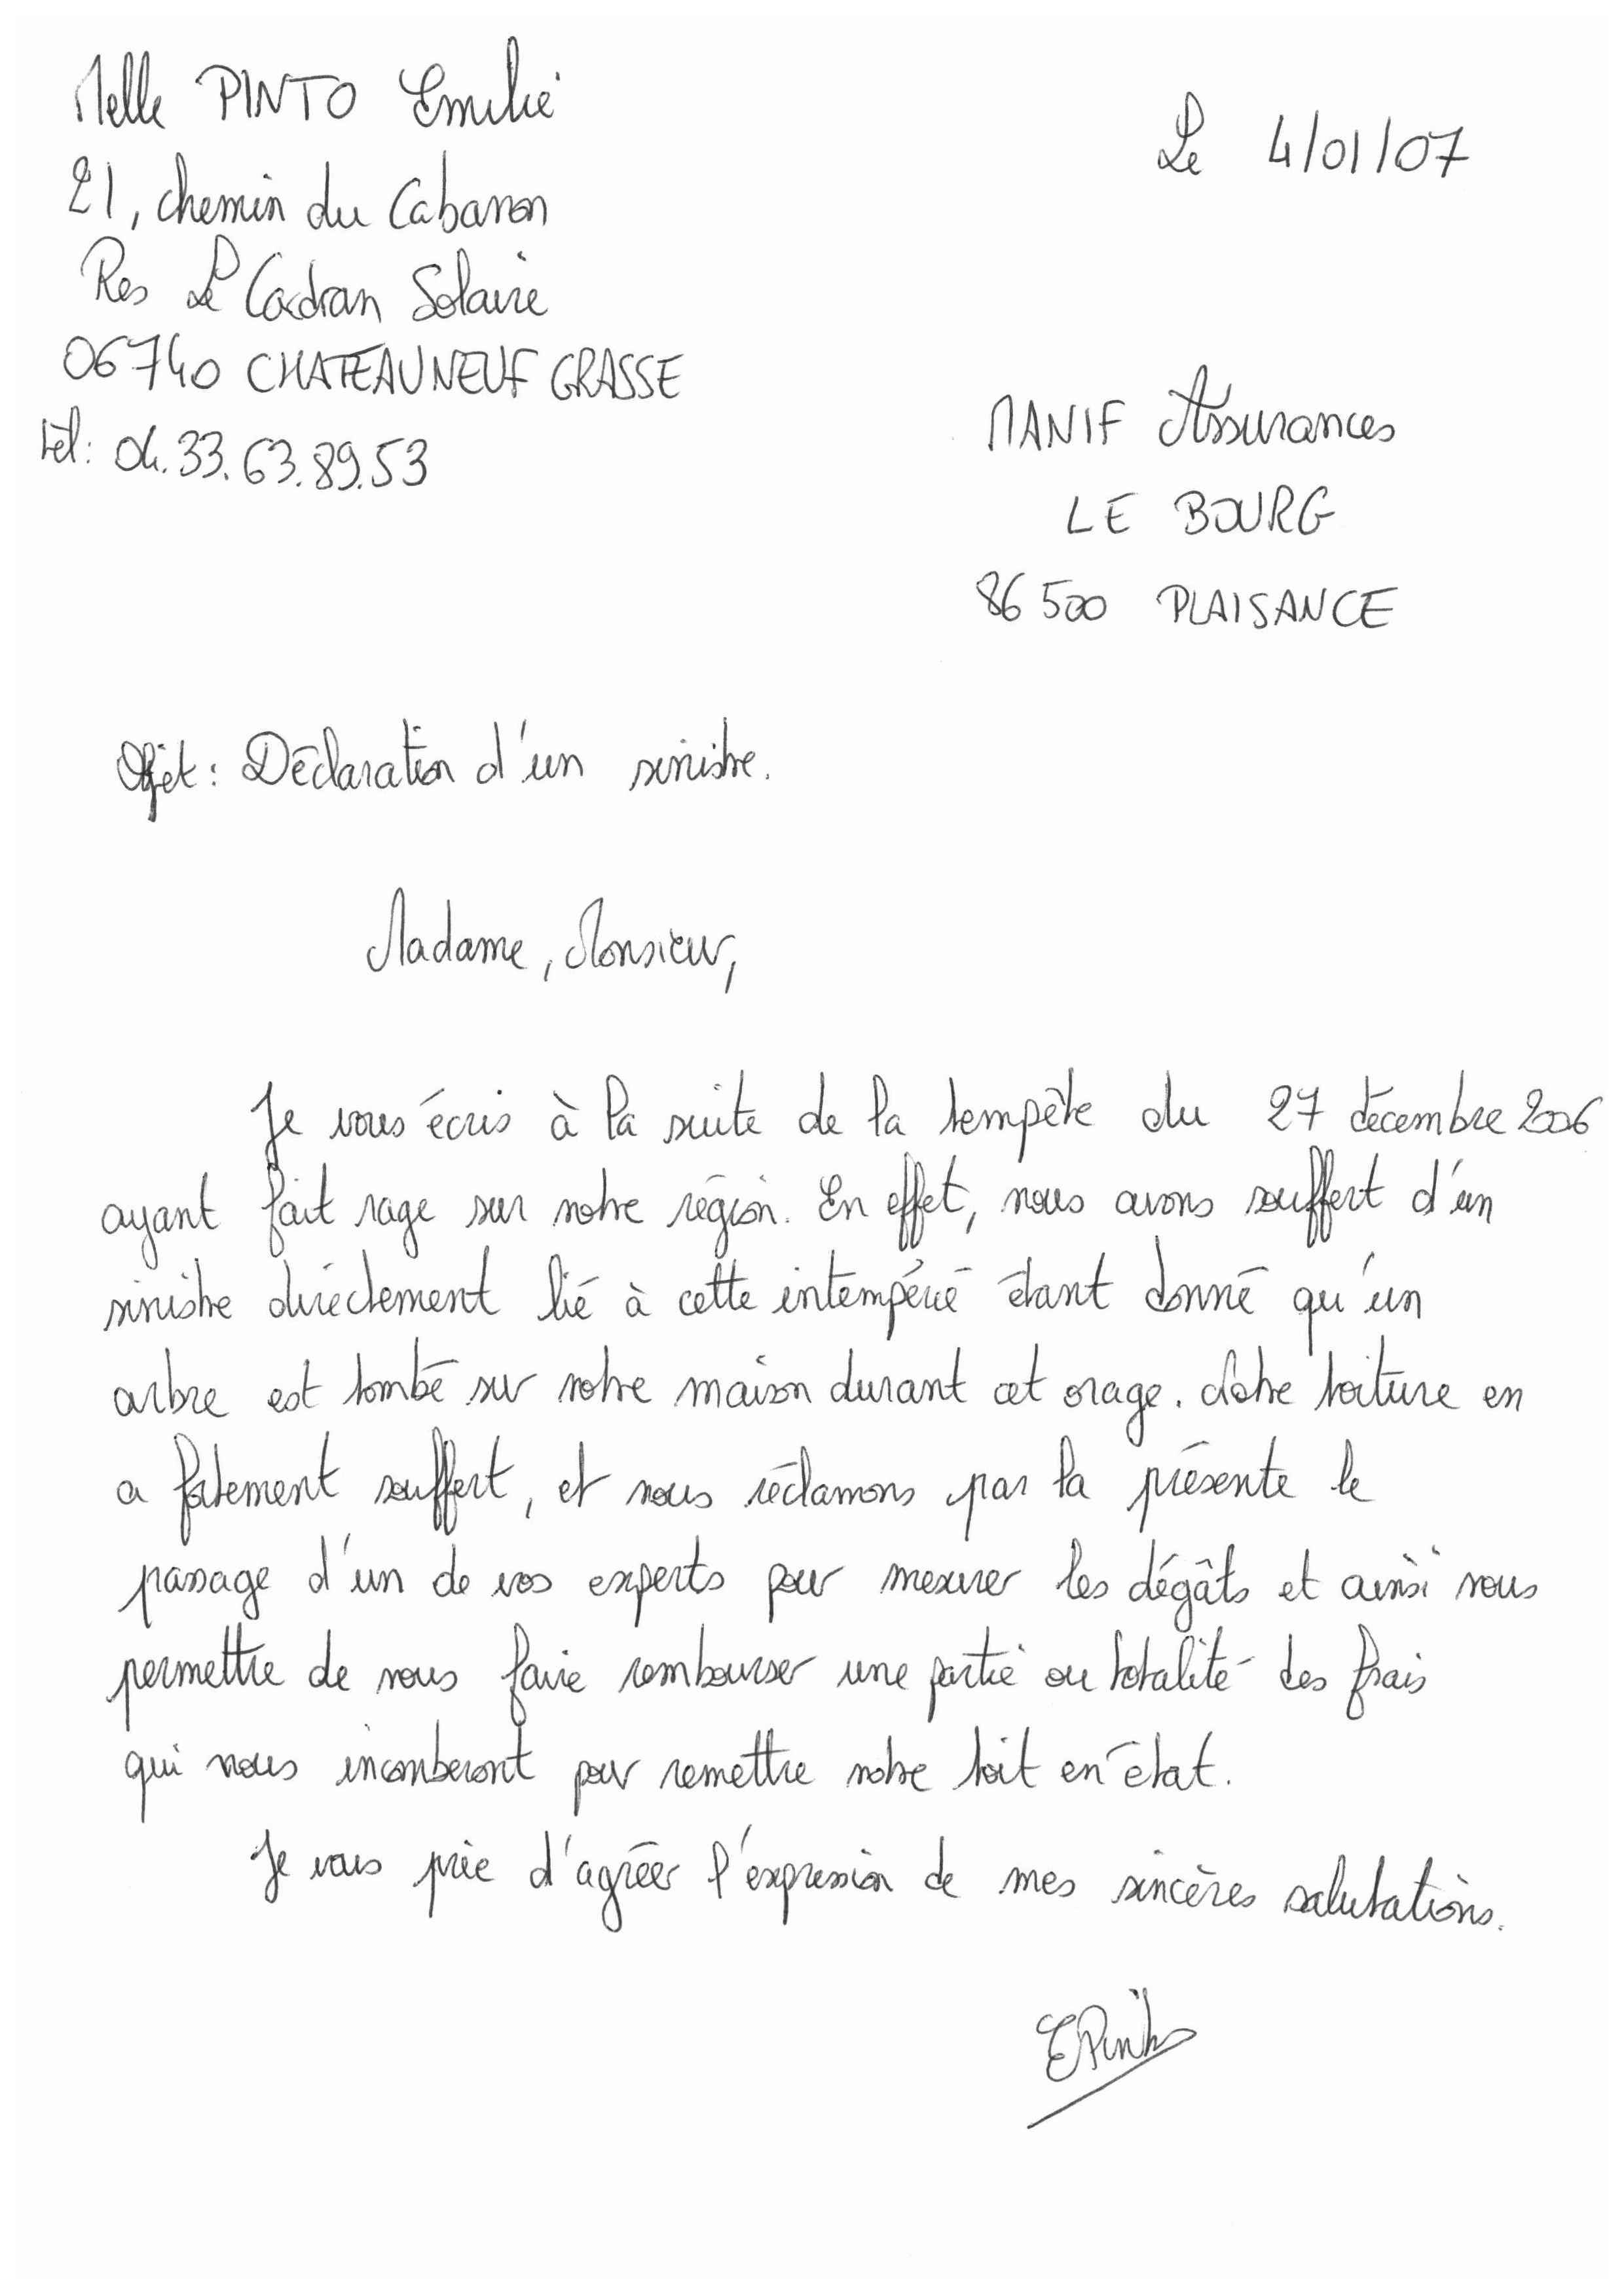 Melle PINTO Emilie
21, chemin du Cabanon
Res Le Cadran Solaire
06740 CHATEAUNEUF GRASSE
tél: 04.33.63.89.53
Le 4/01/07
MANIF Assurances
LE BOURG
86500 PLAISANCE
Objet: Déclaration d'un sinistre.
Madame, Monsieur,
Je vous écris à la suite de la tempête du 27 décembre 2006
ayant fait rage sur notre région. En effet, nous avons souffert d'un
sinistre directement lié à cette intempérie étant donné qu'un
arbre est tombé sur notre maison durant cet orage. Notre toiture en
a fortement souffert, et nous réclamons par la présente le
passage d'un de vos experts pour mesurer les dégâts et ainsi nous
permettre de nous faire rembourser une partie ou totalité des frais
qui nous incomberont pour remettre notre toit en état.
Je vous prie d'agréer l'expression de mes sincères salutations.
EPinto